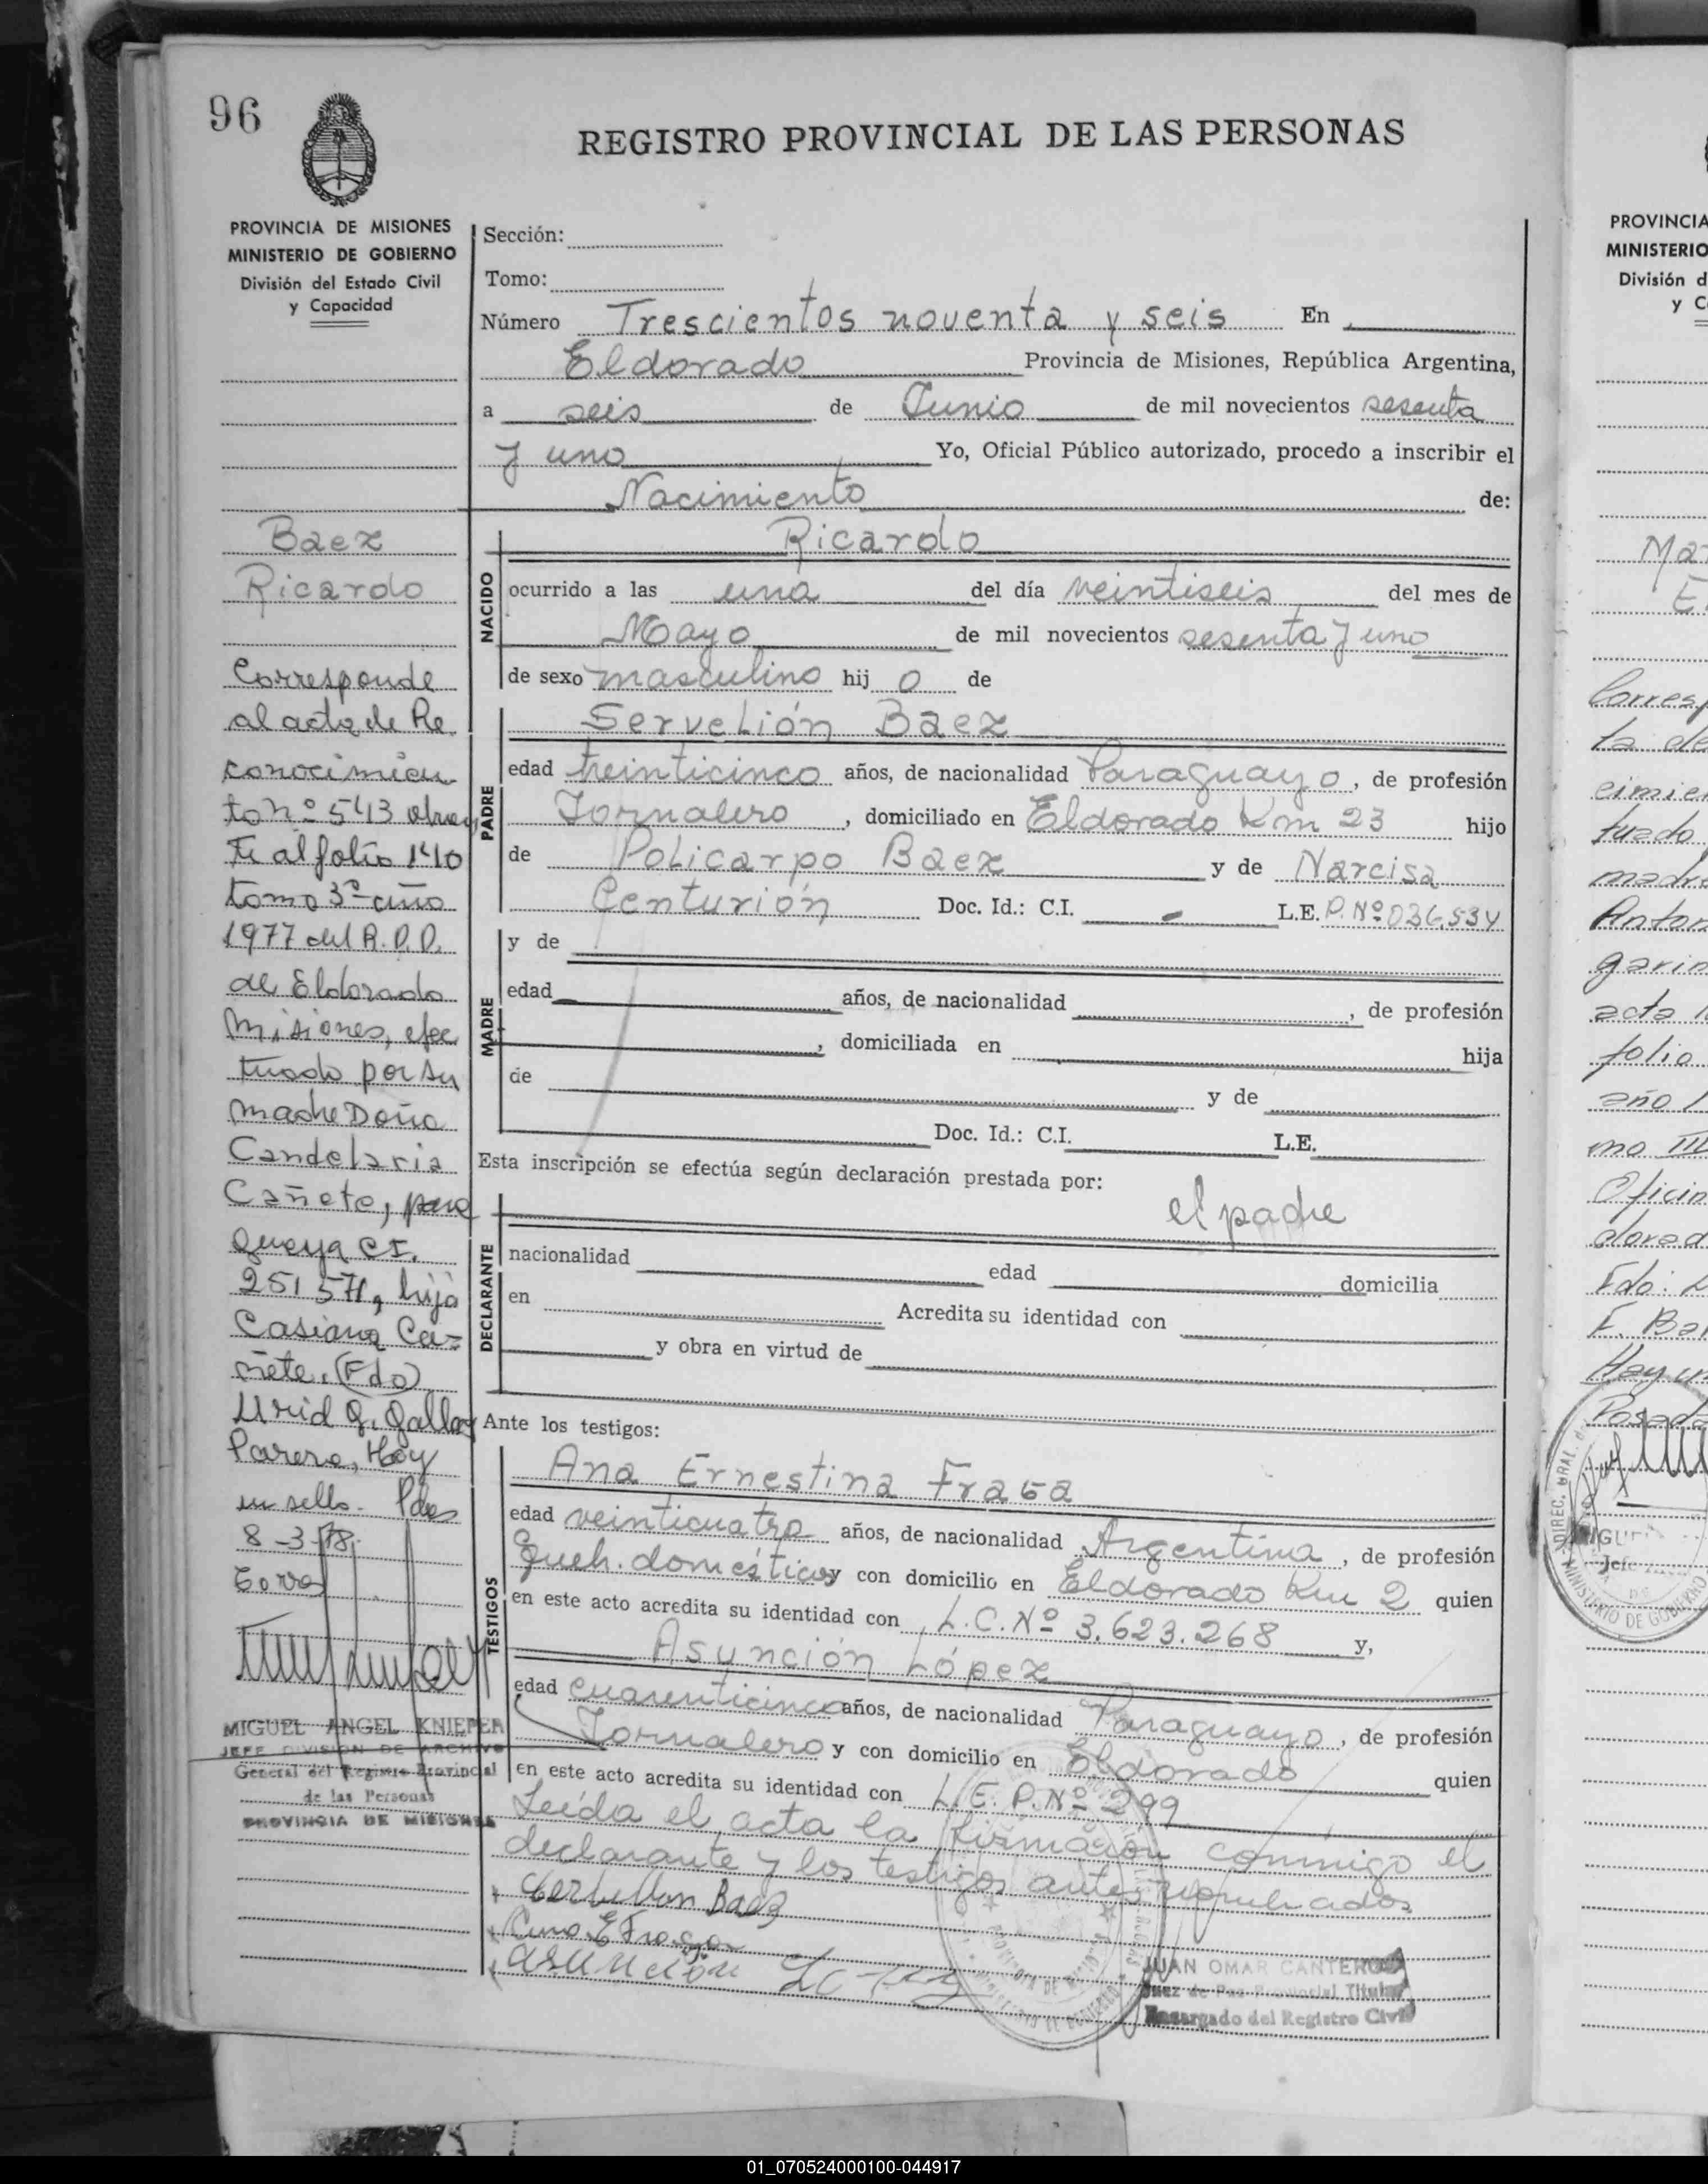 96
REGISTRO PROVINCIAL DE LAS PERSONAS
PROVINCIA DE MISIONES
MINISTERIO DE GOBIERNO
División del Estado Civil
y Capacidad
Baez
Ricardo
Corresponde
al acta de Re
conocimien
to nº 543 obran
te al folio 140
tomo 3º año
1977 del R.P.P.
de Eldorado
Misiones, efec
tuado por su
madre Doña
Candelaria
Cañete, para
guaya CI.
251571, hija
Casiana Ca=
ñete. (Fdo)
Q. Gallay
Parera, Hay
un sello. Pdas
8-3-78.
MIGUEL ANGEL KNIEPER
JEFE DIVISION DE ARCHIVO
General del Registro Provincial
de las Personas
PROVINCIA DE MISIONES
Sección:
Tomo:
Número Trescientos noventa y seis En
Eldorado Provincia de Misiones, República Argentina,
a seis de Junio de mil novecientos sesenta
y uno Yo, Oficial Público autorizado, procedo a inscribir el
Nacimiento de:
NACIDO
Ricardo
ocurrido a las una del día veintiseis del mes de
Mayo de mil novecientos sesenta y uno
de sexo masculino hij o de
PADRE
Servelión Baez
edad treinticinco años, de nacionalidad Paraguayo, de profesión
Jornalero, domiciliado en Eldorado Km 23 hijo
de Policarpo Baez y de Narcisa
Centurión Doc. Id.: C.I. - L.E. P.Nº 036,534
MADRE
y de
edad años, de nacionalidad , de profesión
, domiciliada en hija
de y de
Doc. Id.: C.I. L.E.
Esta inscripción se efectúa según declaración prestada por:
el padre
DECLARANTE
nacionalidad edad domicilia
en Acredita su identidad con
y obra en virtud de
Ante los testigos:
TESTIGOS
Ana Ernestina Fraga
edad veinticuatro años, de nacionalidad Argentina, de profesión
Queh. domésticos y con domicilio en Eldorado Km 2 quien
en este acto acredita su identidad con L.C.Nº 3.623.268 y,
Asunción López
edad cuarenticinco años, de nacionalidad Paraguayo, de profesión
Jornalero y con domicilio en Eldorado quien
en este acto acredita su identidad con L.E. P.Nº 299
Leída el acta la firmaron conmigo el
declarante y los testigos antes nombrados
Baez
Ana E Fraga
asunción
JUAN OMAR CANTERO
Juez de Paz Provincial Titular
Encargado del Registro Civil
PROVINCIA
MINISTERIO
División d
y C
Corres
ta de
cimien
tuado
madre
Anton
garin
acta
folio
año 1
mo III
Oficin
dorad
Fdo:
F. Ba
Hay u
Posada
MINISTERIO DE GOBIERNO
01_070524000100-044917